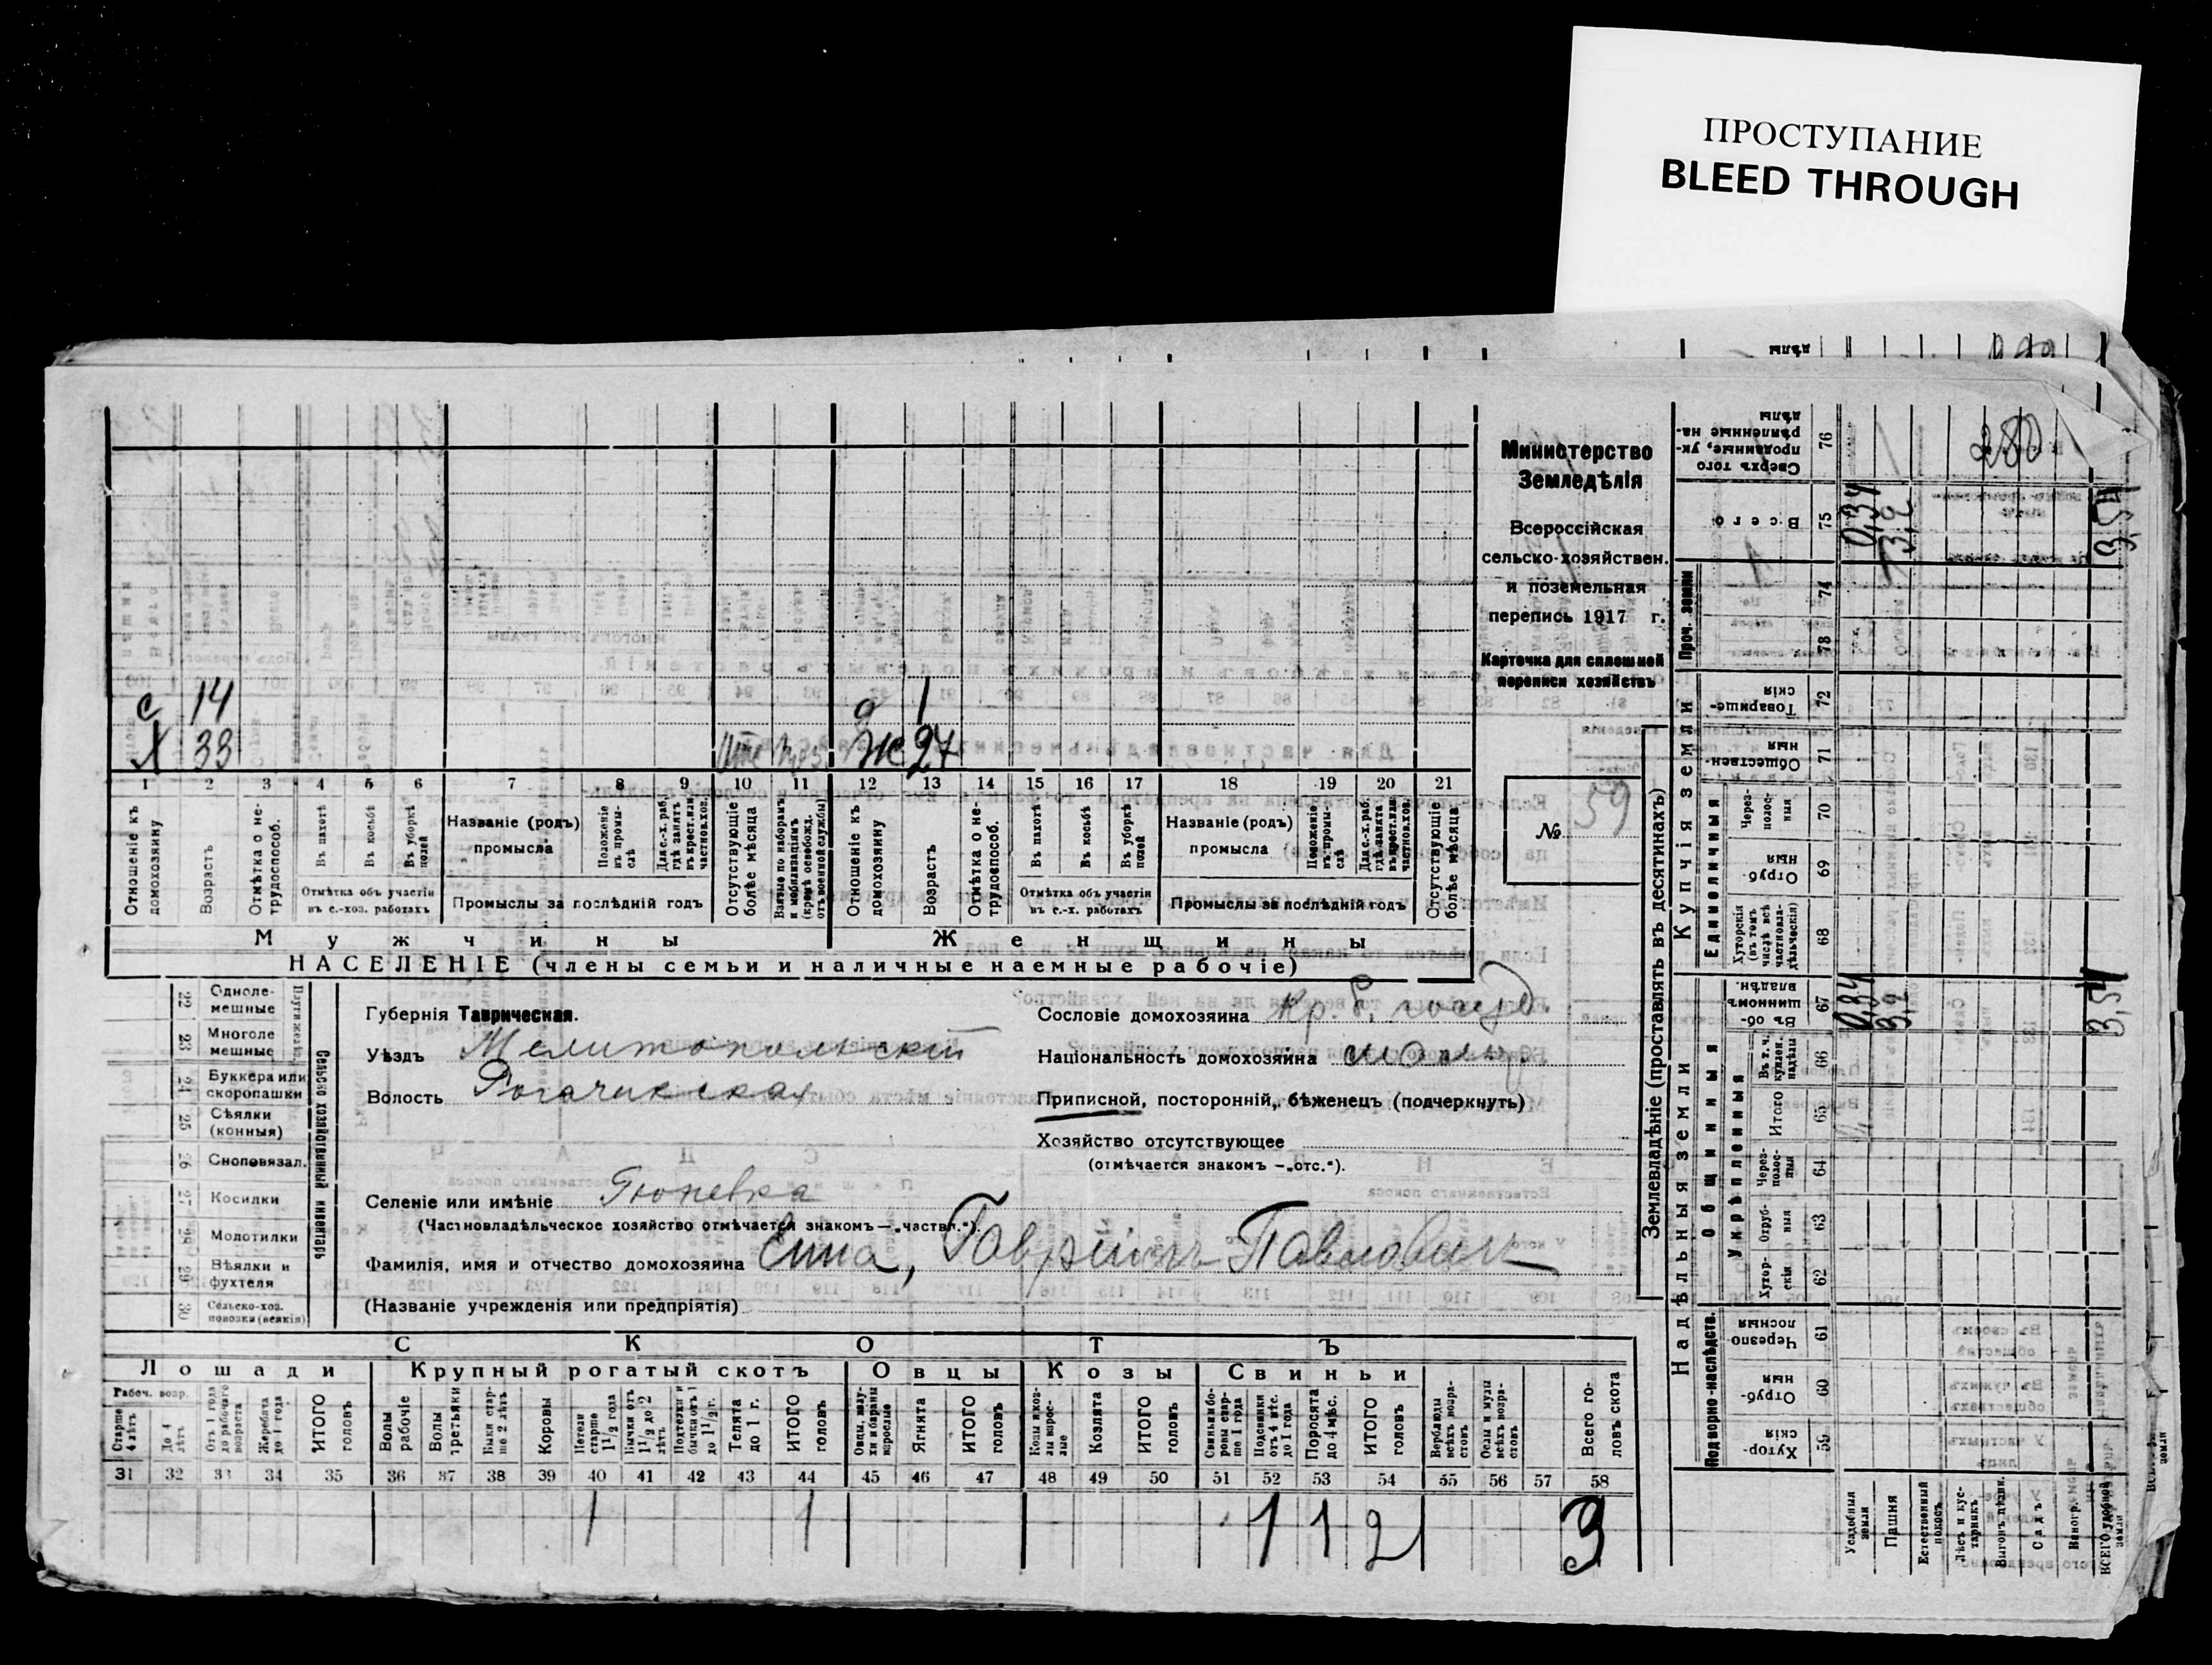 ПРОСТУПАНИЕ
BLEED THROUGH
Министерство
Земледѣлія
Всероссійская
сельско-хозяйствен.
и поземельная
перепись 1917 г.
Карточка для сплошной
переписи хозяйствъ
№ 59
с 14
д 1
Х 33
Ж 27
1 2 3 4 5 6 7 8 9 10 11 12 13 14 15 16 17 18 19 20 21
Отношеніе къ домохозяину
Возрастъ
Отмѣтка о не-трудоспособ.
Въ пахотѣ
Въ косьбѣ
Въ уборкѣ полей
Отмѣтка объ участіи въ с.-хоз. работахъ
Названіе (родъ) промысла
Положеніе въ промы-слѣ
Для с.-х. раб. гдѣ занятъ въ крест. или частнов. хоз.
Промыслы за послѣдній годъ
Отсутствующіе болѣе мѣсяца
Взятые по наборамъ и мобилизаціямъ (кромѣ освобожд. отъ военной службы)
Отношеніе къ домохозяину
Возрастъ
Отмѣтка о не-трудоспособ.
Въ пахотѣ
Въ косьбѣ
Въ уборкѣ полей
Отмѣтка объ участіи въ с.-х. работахъ
Названіе (родъ) промысла
Положеніе въ промы-слѣ
Для с.-х. раб. гдѣ занята въ крест. или частнов. хоз.
Промыслы за послѣдній годъ
Отсутствующіе болѣе мѣсяца
Мужчины
Женщины
НАСЕЛЕНІЕ (члены семьи и наличные наемные рабочіе)
22 Одноле-мешные
23 Многоле мешные
24 Буккера или скоропашки
25 Сѣялки (конныя)
26 Сноповязал.
27 Косилки
28 Молотилки
29 Вѣялки и фухтеля
30 Сельско-хоз. повозки (всякія)
Сельско хозяйственный инвентарь
Губернія Таврическая.
Уѣздъ Мелитопольскій
Волость Рогачикская
Селеніе или имѣніе Гюневка
(Частновладѣльческое хозяйство отмѣчается знакомъ —„частвл.“).
Фамилія, имя и отчество домохозяина Еппа, Гавріилъ Павловичъ
(Названіе учрежденія или предпріятія)
Сословіе домохозяина кр. б. госуд.
Національность домохозяина малор.
Приписной, посторонній, бѣженецъ (подчеркнуть)
Хозяйство отсутствующее
(отмѣчается знакомъ —„отс.“).
СКОТЪ
Лошади
Крупный рогатый скотъ
Овцы
Козы
Свиньи
Рабоч. возр.
Старше 4 лѣтъ
До 4 лѣтъ
Отъ 1 года до рабочаго возраста
Жеребята до 1 года
ИТОГО головъ
Волы рабочіе
Волы третьяки
Быки стар-ше 2 лѣтъ
Коровы
Нетели старше 1 1/2 года
Бычки отъ 1 1/2 до 2 лѣтъ
Подтелки и бычки отъ 1 до 1 1/2 г.
Телята до 1 г.
ИТОГО головъ
Овцы, валу-хи и бараны взрослые
Ягнята
ИТОГО головъ
Козы и коз-лы взрос-лые
Козлята
ИТОГО головъ
Свиньи и бо-ровы стар-ше 1 года
Подсвинки отъ 4 мѣс. до 1 года
Поросята до 4 мѣс.
ИТОГО головъ
Верблюды всѣхъ возра-стовъ
Ослы и мулы всѣхъ возра-стовъ
Всего го-ловъ скота
31 32 33 34 35 36 37 38 39 40 41 42 43 44 45 46 47 48 49 50 51 52 53 54 55 56 57 58
1 1 1 1 2 3
Землевладѣніе (проставлять въ десятинахъ)
Надѣльныя земли
Купчія земли
Проч. земли
Подворно-наслѣдств.
Общинныя
Укрѣпленныя
Единоличныя
Хутор-скія 59
Отруб-ныя 60
Черезпо лосныя 61
Хутор-скія 62
Отруб-ныя 63
Через-полос-ныя 64
Итого 65
Въ т. ч. куплен. надѣлы 66
Въ об-щинномъ владѣн. 67
Хуторскія (въ томъ числѣ всѣ частновла-дѣльческія) 68
Отруб ныя 69
Через-полос-ныя 70
Обществен-ныя 71
Товарище-скія 72
73
74
Всего 75
Сверхъ того проданные, ук-рѣпленные на-дѣлы 76
Усадебныя земли
Пашня
Естественный покосъ
Лѣсъ и кус-тарникъ
Выгонъ цѣлин.
Садъ
Виногр.
ВСЕГО удобной земли
0,34
3,2
3,54
0,34
3,2
3,54
280